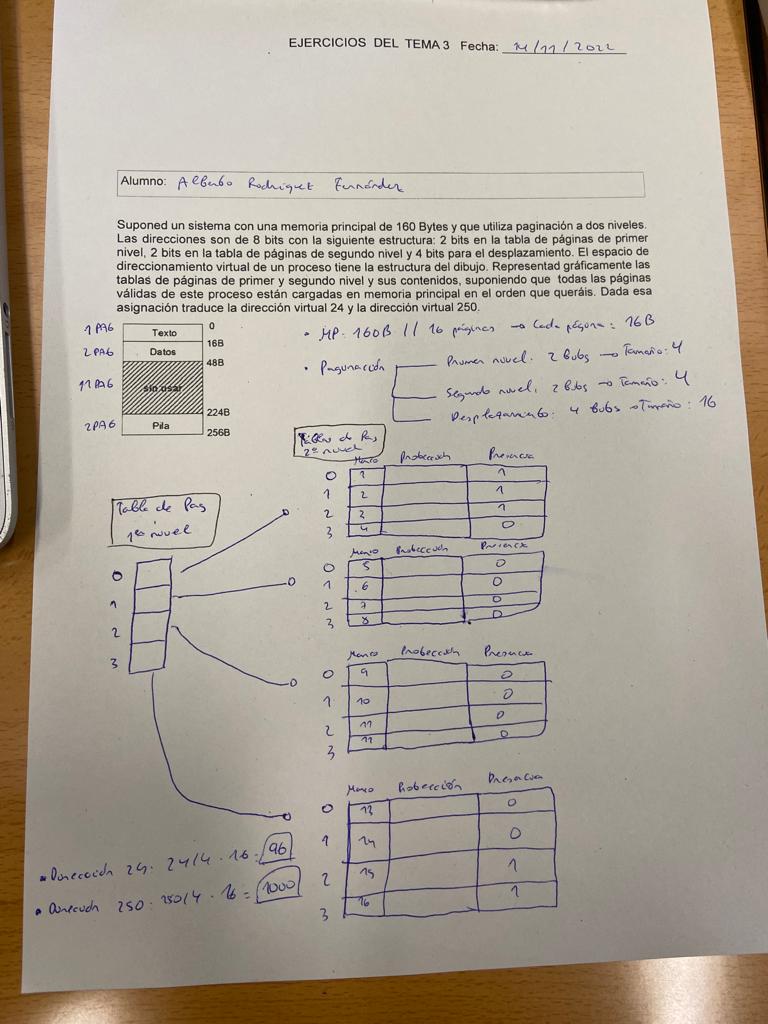 EJERCICIOS DEL TEMA 3 Fecha: 14/11/2022
Alumno: Alberto Rodríguez Fernández
Suponed un sistema con una memoria principal de 160 Bytes y que utiliza paginación a dos niveles.
Las direcciones son de 8 bits con la siguiente estructura: 2 bits en la tabla de páginas de primer
nivel, 2 bits en la tabla de páginas de segundo nivel y 4 bits para el desplazamiento. El espacio de
direccionamiento virtual de un proceso tiene la estructura del dibujo. Representad gráficamente las
tablas de páginas de primer y segundo nivel y sus contenidos, suponiendo que todas las páginas
válidas de este proceso están cargadas en memoria principal en el orden que queráis. Dada esa
asignación traduce la dirección virtual 24 y la dirección virtual 250.
1 PAG Texto 0
16B
2 PAG Datos
48B
11 PAG sin usar
224B
2 PAG Pila
256B
• MP: 160B // 16 páginas → Cada página: 16B
• Paginación
Primer nivel: 2 Bits → Tamaño: 4
Segundo nivel: 2 Bits → Tamaño: 4
Desplazamiento: 4 Bits → Tamaño: 16
Tablas de Pag
2º nivel
Marco Protección Presencia
0 1 1
1 2 1
2 3 1
3 4 0
Marco Protección Presencia
0 5 0
1 6 0
2 7 0
3 8 0
Marco Protección Presencia
0 9 0
1 10 0
2 11 0
3 11 0
Marco Protección Presencia
0 13 0
1 14 0
2 15 1
3 16 1
Tabla de Pag
1er nivel
0
1
2
3
• Dirección 24: 24/4 · 16 = 96
• Dirección 250: 250/4 · 16 = 1000